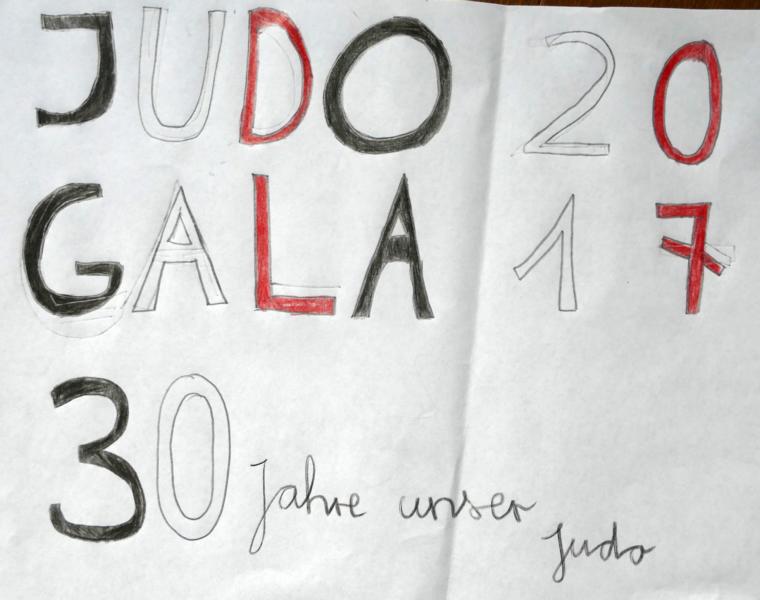 JUDO 20
GALA 17
30 Jahre unser
Judo